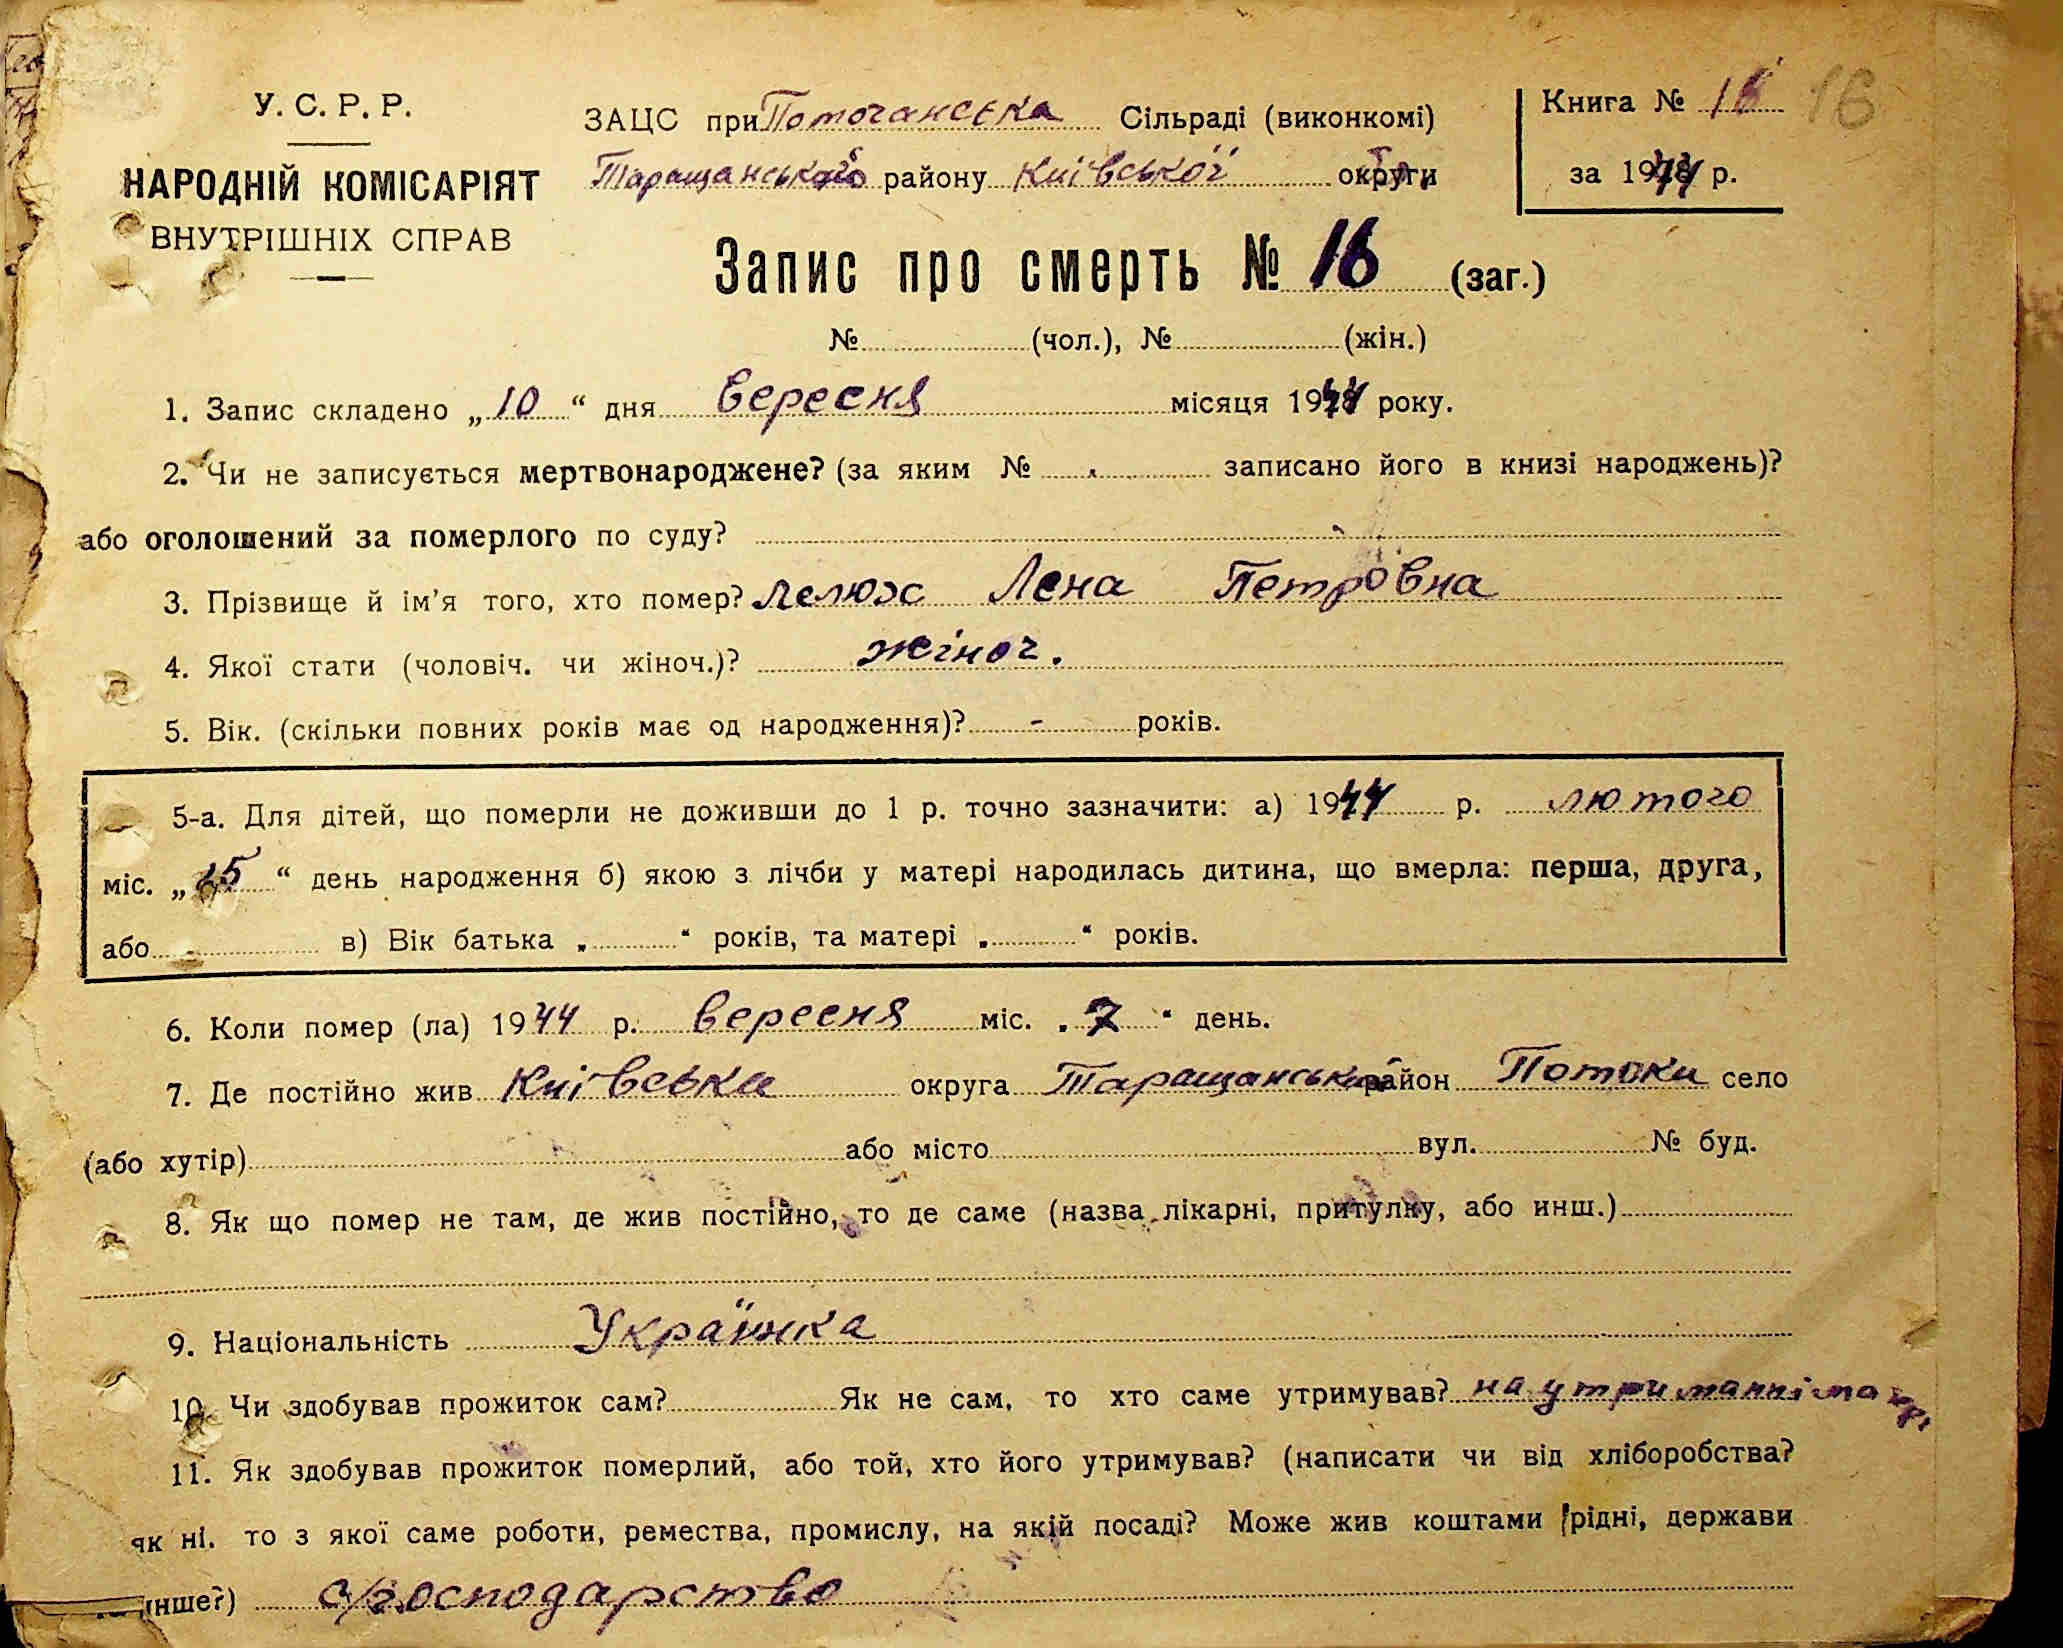 У.С.Р.Р.
НАРОДНІЙ КОМІСАРІЯТ
ВНУТРІШНІХ СПРАВ
ЗАЦС при Поточанська Сільраді (виконкомі)
Таращанського району Київської округи
Книга № 16 16
за 1944 р.
Запис про смерть № 16 (заг.)
№ (чол.), № (жін.)
1. Запис складено „10“ дня вересня місяця 1944 року.
2. Чи не записується мертвонароджене? (за яким № записано його в книзі народжень)?
або оголошений за померлого по суду?
3. Прізвище й ім'я того, хто помер? Лелюх Лена Петровна
4. Якої стати (чоловіч. чи жіноч.)? жіноч.
5. Вік. (скільки повних років має од народження)? - років.
5-а. Для дітей, що померли не доживши до 1 р. точно зазначити: а) 1944 р. лютого
міс. „25“ день народження б) якою з лічби у матері народилась дитина, що вмерла: перша, друга,
або в) Вік батька „ “ років, та матері „ “ років.
6. Коли помер (ла) 1944 р. вересня міс. „7“ день.
7. Де постійно жив Київська округа Таращанський район Потоки село
(або хутір) або місто вул. № буд.
8. Як що помер не там, де жив постійно, то де саме (назва лікарні, притулку, або инш.)
9. Національність Українка
10. Чи здобував прожиток сам? Як не сам, то хто саме утримував? на утриманні матері
11. Як здобував прожиток померлий, або той, хто його утримував? (написати чи від хліборобства?
як ні, то з якої саме роботи, ремества, промислу, на якій посаді? Може жив коштами рідні, держави
инше?) с/господарство